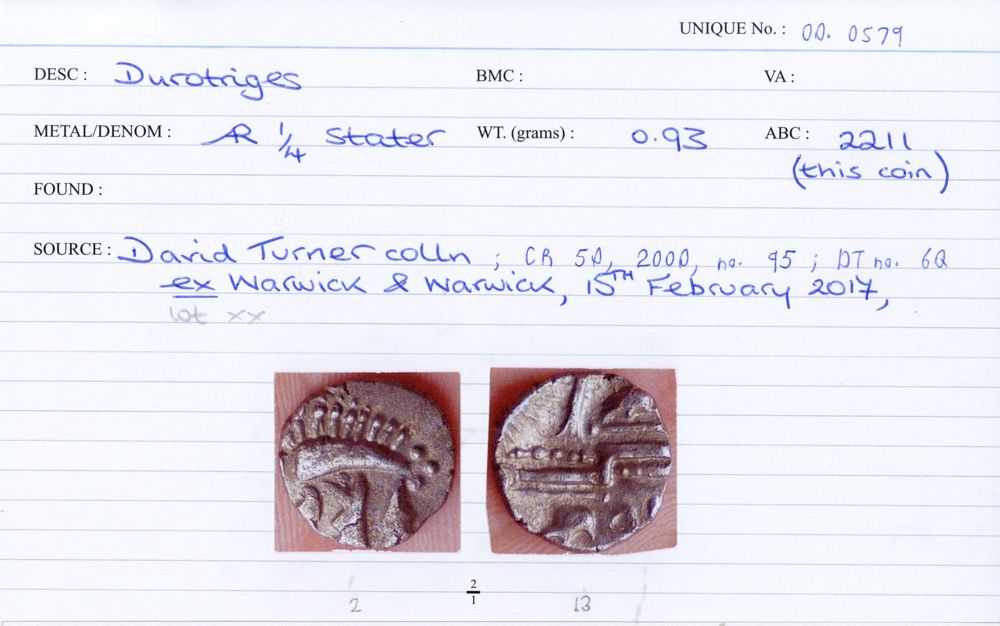 UNIQUE No. : 00. 0579
DESC : Durotriges BMC : VA :
METAL/DENOM : AR 1/4 Stater WT. (grams) : 0.93 ABC : 2211
(this coin)
FOUND :
SOURCE : David Turner colln ; CR 50, 2000, no. 95 ; DT no. 60
ex Warwick & Warwick, 15TH February 2017,
lot xx
2 2/1 13